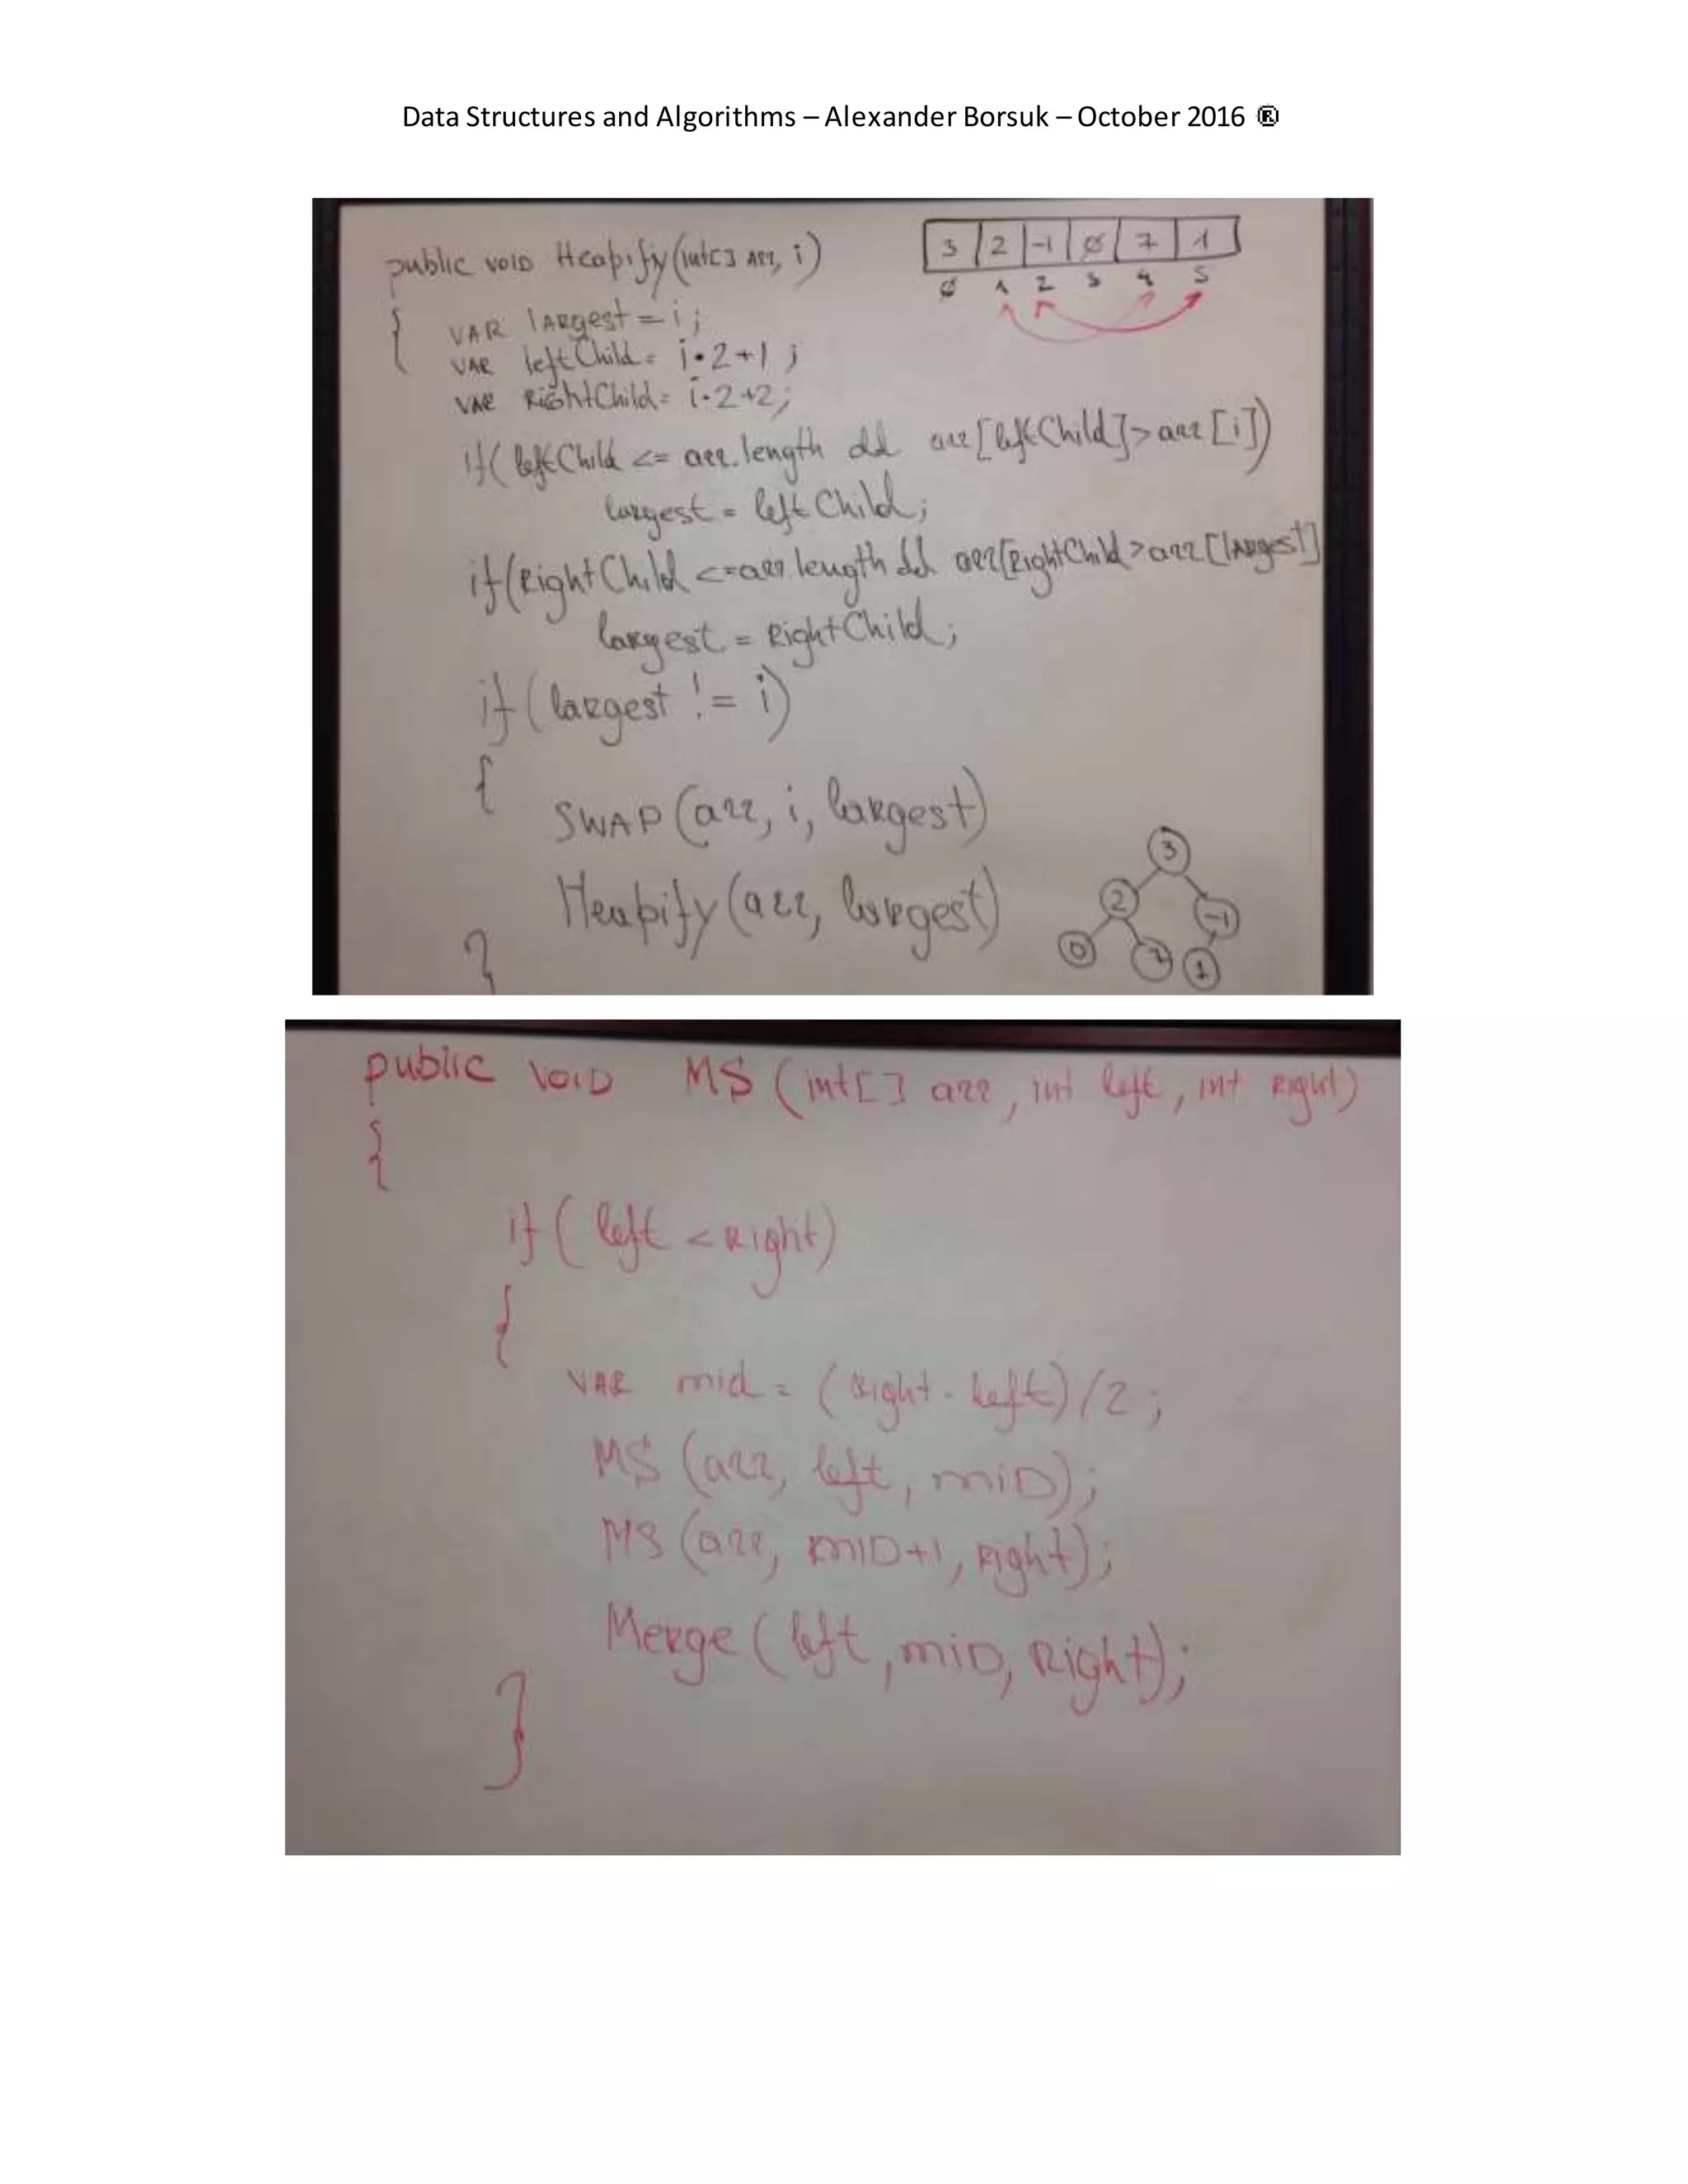 Data Structures and Algorithms – Alexander Borsuk – October 2016 ®
public void Heapify(int[] arr, i)
3 2 -1 0 7 1
0 1 2 3 4 5
{ var largest = i;
var leftChild = i·2+1;
var RightChild = i·2+2;
if( leftChild <= arr.length && arr[leftChild]>arr[i])
largest = leftChild;
if(RightChild <=arr.length && arr[RightChild>arr[largest]
largest = RightChild;
if(largest != i)
{
SWAP(arr, i, largest)
Heapify(arr, largest)
}
3
2 -1
0 7 1
public void MS (int[] arr, int left, int Right)
{
if( left < Right)
{
var mid = (Right - left)/2;
MS (arr, left, miD);
MS (arr, miD+1, Right);
Merge(left, miD, Right);
}